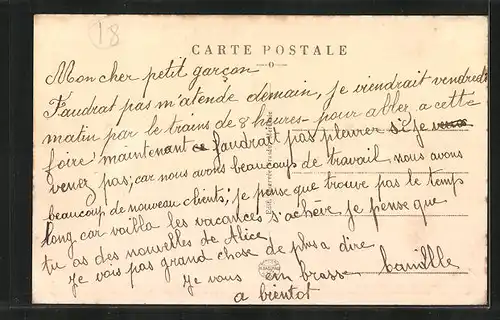 18
CARTE POSTALE
Mon cher petit garçon
Faudrat pas m'atende demain, je viendrait vendredi
matin par le trains de 8 heures pour allez a cette
foire maintenant faudrait pas pleurer si je
venez pas; car nous avons beaucoup de travail nous avons
beaucoup de nouveau clients; je pense que trouve pas le temps
long car voilla les vacances s'achève, je pense que
tu as des nouvelles de Alice
Je vois pas grand chose de plus a dire
Je vous em brasse Camille
a bientot